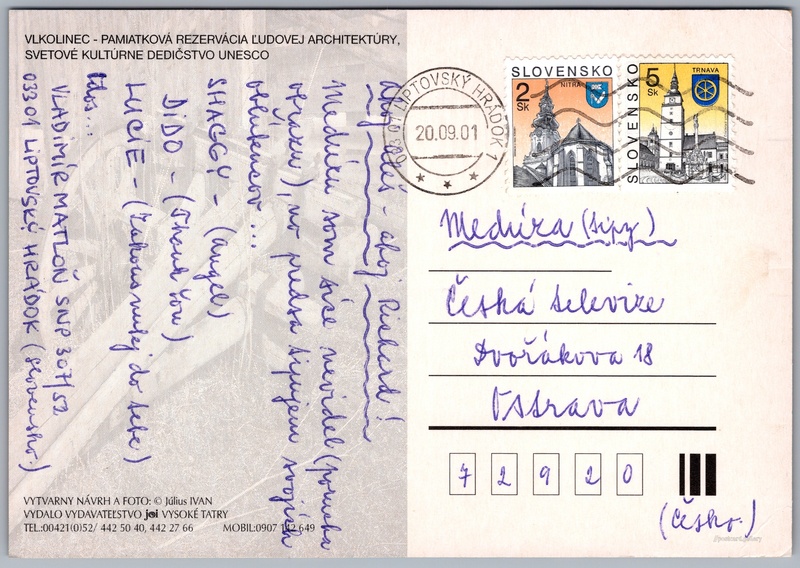 VLKOLINEC - PAMIATKOVÁ REZERVÁCIA ĽUDOVEJ ARCHITEKTÚRY,
SVETOVÉ KULTÚRNE DEDIČSTVO UNESCO
Ahoj ahoj Richard!
Medúzu som síce nevidel (porucha
obrazu), no predsa tipujem svojich
obľúbencov...
SHAGGY - (Angel)
DIDO - (Thank You)
LUCIE - (Zakousnutej do tebe)
Čus...
VLADIMÍR MATLOŇ SNP 307/52
03301 LIPTOVSKÝ HRÁDOK (Slovensko.)
VYTVARNY NÁVRH A FOTO: © Július IVAN
VYDALO VYDAVATEĽSTVO joi VYSOKÉ TATRY
TEL.:00421(0)52/ 442 50 40, 442 27 66 MOBIL:0907 142 649
033 01 LIPTOVSKÝ HRÁDOK 1
20.09.01
SLOVENSKO
2 Sk
NITRA
SLOVENSKO
5 Sk
TRNAVA
Medúza (tipy)
Česká televize
Dvořákova 18
Ostrava
7 2 9 2 0
(Česko.)